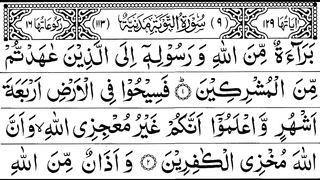 اٰیَاتُهَا ١٢٩ (٩) سُوْرَةُ التَّوْبَةِ مَدَنِیَّةٌ (١١٣) رُكُوْعَاتُهَا ١٦
بَرَآءَةٌ مِّنَ اللّٰهِ وَ رَسُوْلِهٖۤ اِلَى الَّذِیْنَ عٰهَدْتُّمْ
مِّنَ الْمُشْرِكِیْنَ ۝١ فَسِیْحُوْا فِی الْاَرْضِ اَرْبَعَةَ
اَشْهُرٍ وَّ اعْلَمُوْۤا اَنَّكُمْ غَیْرُ مُعْجِزِی اللّٰهِ ۙ وَ اَنَّ
اللّٰهَ مُخْزِی الْكٰفِرِیْنَ ۝٢ وَ اَذَانٌ مِّنَ اللّٰهِ